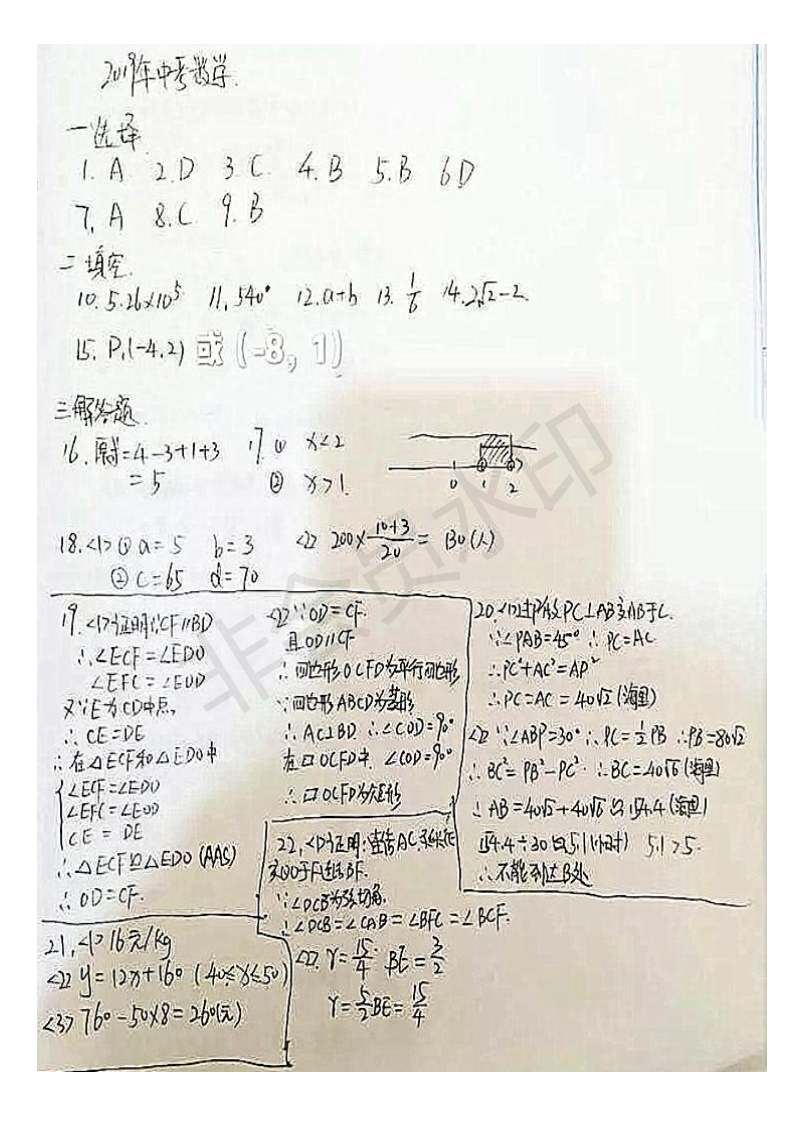 2019年中考数学.
一选择
1. A 2. D 3. C. 4. B 5. B 6 D
7. A 8. C. 9. B
二填空.
10. 5.26×10⁵ 11. 540° 12. a+b 13. 1/6 14. 2√2-2.
15. P₁(-4,2) 或 (-8, 1)
三解答题.
16. 原式=4-3+1+3
=5
17. ① x<2
② x>1.
0 1 2
18. <1> ① a=5 b=3
② c=65 d=70
<2> 200×(10+3)/20 = 130(人)
19. <1>证明:∵CF∥BD
∴∠ECF=∠EDO
∠EFC=∠EOD
又∵E为CD中点,
∴CE=DE
∴在△ECF和△EDO中
∠ECF=∠EDO
∠EFC=∠EOD
CE = DE
∴△ECF≌△EDO (AAS)
∴OD=CF.
<2>∵OD=CF.
且OD∥CF
∴四边形OCFD为平行四边形
∵四边形ABCD为菱形
∴AC⊥BD ∴∠COD=90°
在□OCFD中, ∠COD=90°
∴□OCFD为矩形
20. <1>过P做PC⊥AB交AB于C.
∵∠PAB=45° ∴PC=AC
∴PC²+AC²=AP²
∴PC=AC=40√2(海里)
<2>∵∠ABP=30° ∴PC=½PB ∴PB=80√2
∴BC²=PB²-PC² ∴BC=40√6(海里)
∴AB=40√2+40√6≈154.4(海里)
154.4÷30≈5.1(小时) 5.1>5.
∴不能到达B处
21. <1> 16元/kg
<2> y=12x+160 (40≤x≤50)
<3> 760-50×8=260(元)
22. <1>证明:
∵∠DCB为弦切角.
∴∠DCB=∠CAB=∠BFC=∠BCF.
<2> r=15/4 BE=3/2
r=5/2BE=15/4
非会员水印